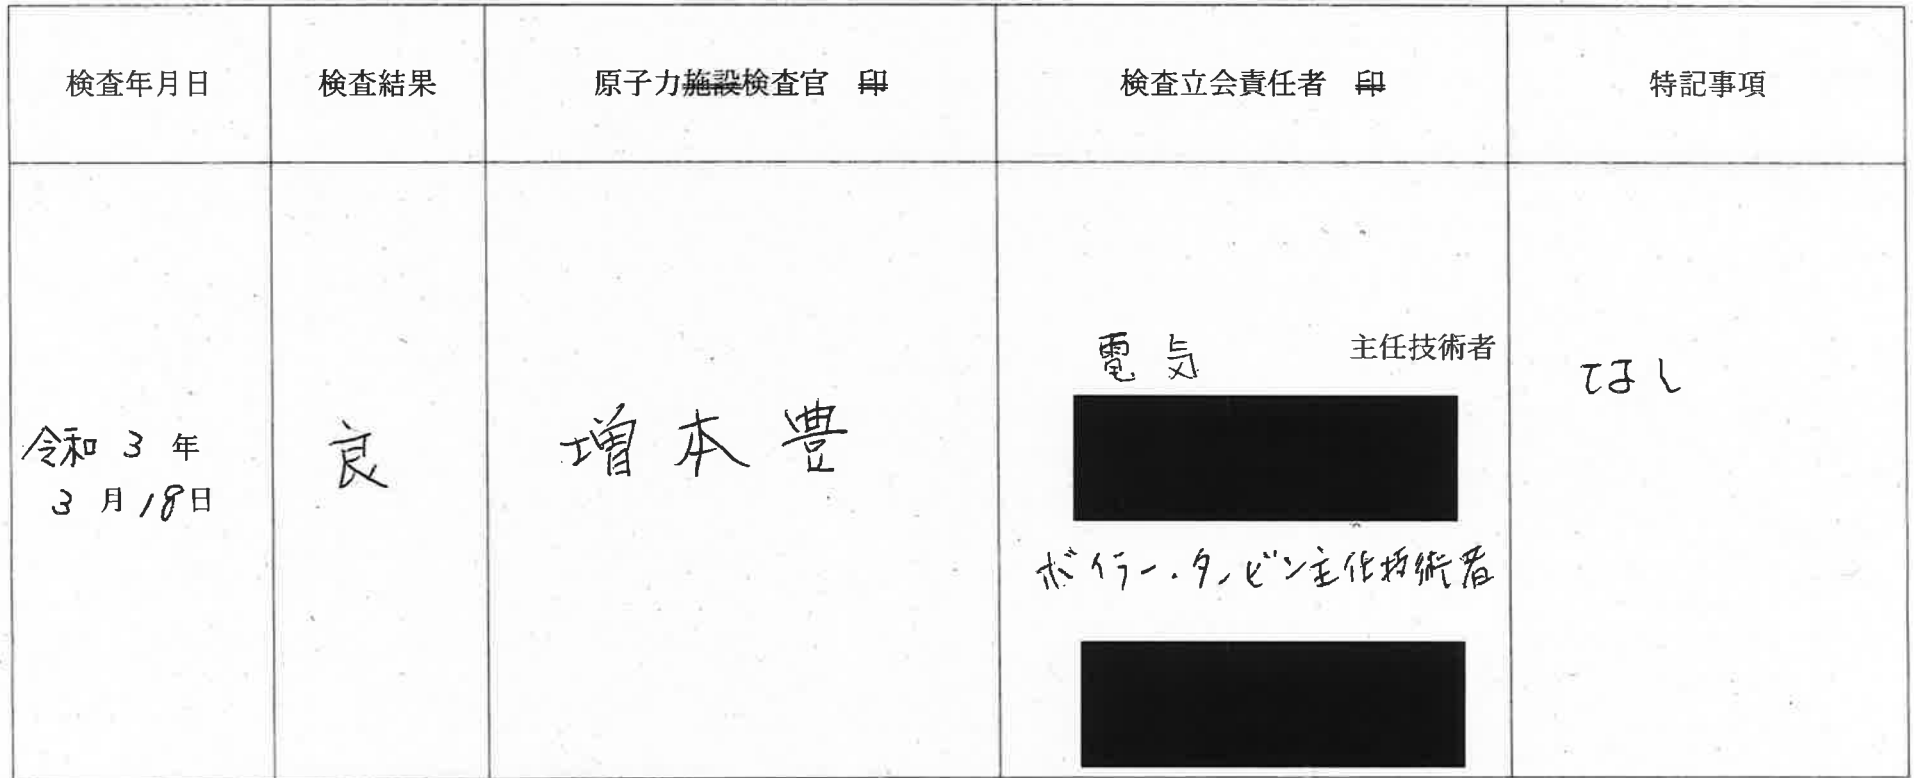 検査年月日
検査結果
原子力施設検査官 印
検査立会責任者 印
特記事項
令和 3 年
3 月 18 日
良
増本 豊
電気 主任技術者
ボイラー・タービン主任技術者
なし